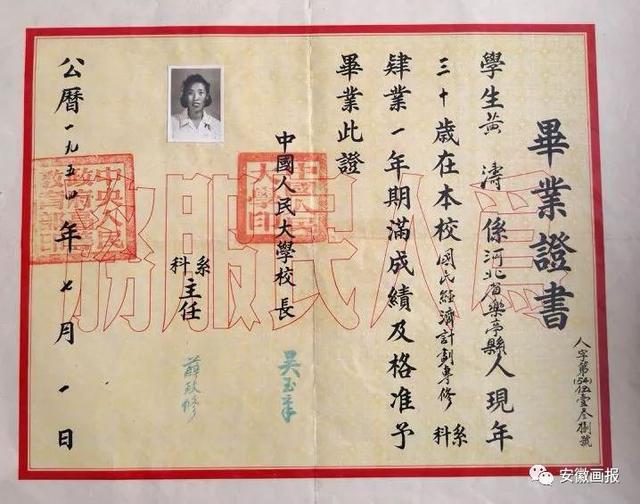 畢業證書
人字第(54)伍壹叁捌號
學生黃濤係河北省樂亭縣人現年
三十歲在本校國民經濟計劃專修系科
肄業一年期滿成績及格准予
畢業此證
中國人民大學校長 吳玉章
系科主任 薛政修
公曆一九五四年七月一日
為人民服務
中國人民大學印
安徽画报